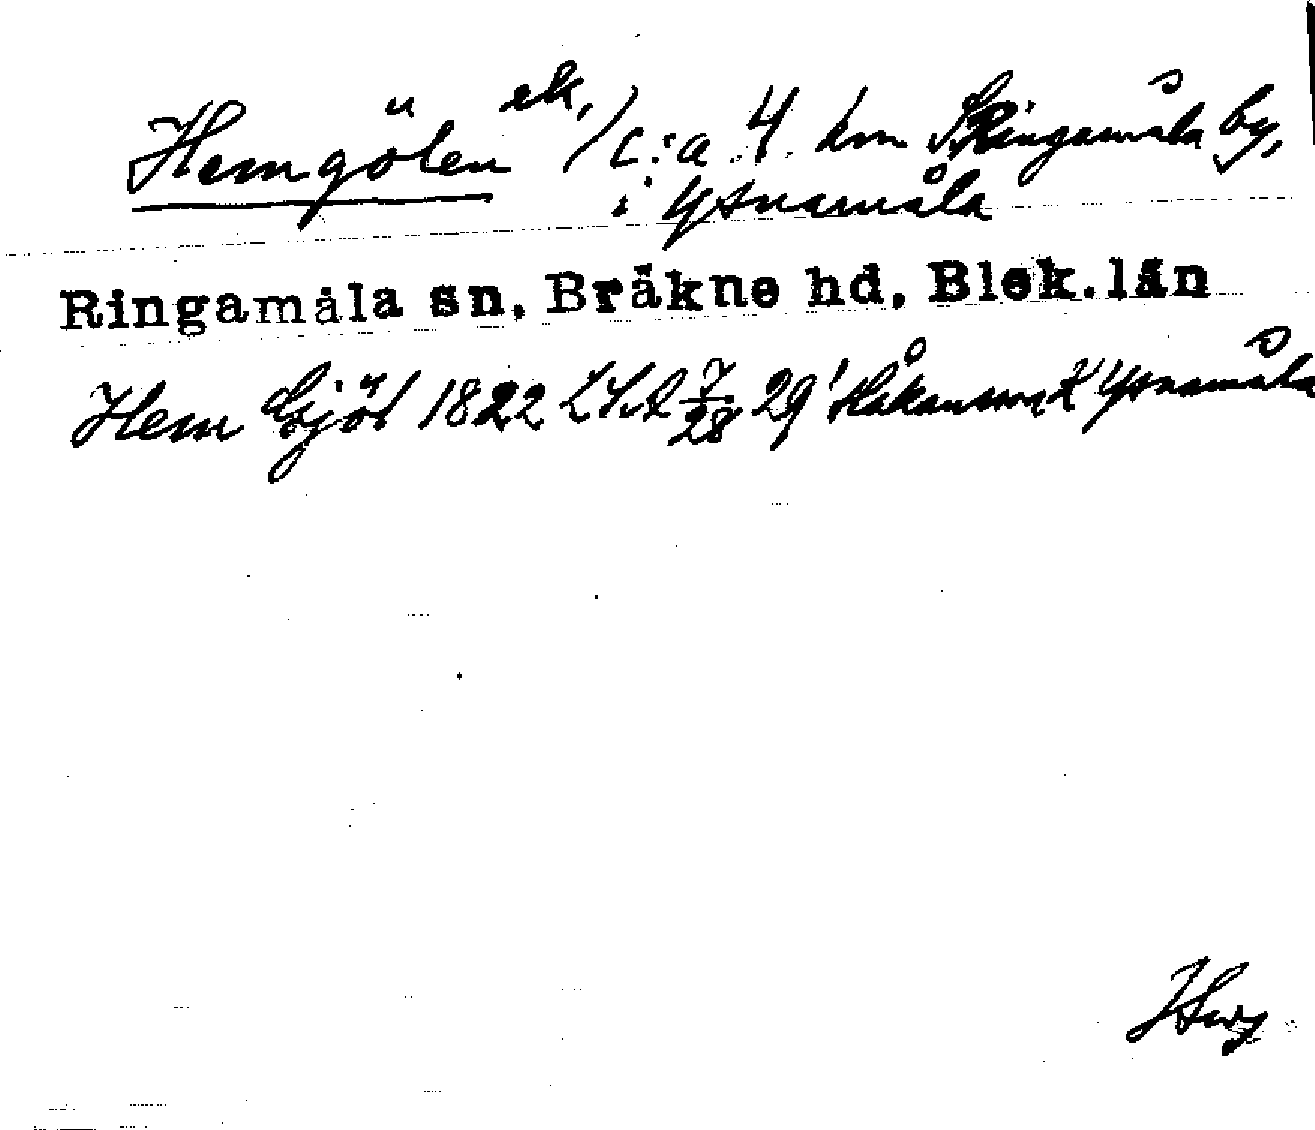 Hemgölen ek, / c:a 4 km S Ringamåla by,
i Ysnamåla
Ringamåla sn, Bräkne hd, Blek.län
Hem Gjöl 1822 7/28 29 Håkansson, Ysnamåla